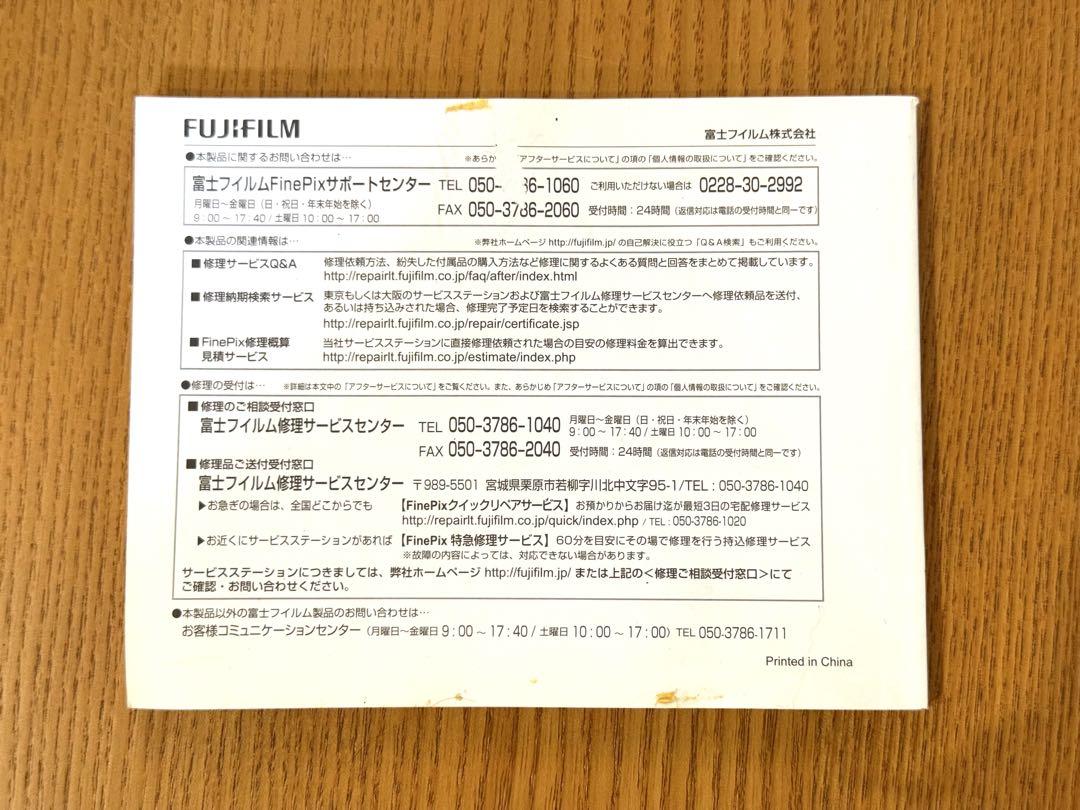 FUJIFILM
富士フイルム株式会社
●本製品に関するお問い合わせは…
※あらか 「アフターサービスについて」の項の「個人情報の取扱について」をご確認ください。
富士フイルムFinePixサポートセンター TEL 050- 86-1060 ご利用いただけない場合は 0228-30-2992
月曜日〜金曜日(日・祝日・年末年始を除く)
9:00 〜 17:40 / 土曜日 10:00 〜 17:00
FAX 050-3786-2060 受付時間:24時間(返信対応は電話の受付時間と同一です)
●本製品の関連情報は…
※弊社ホームページ http://fujifilm.jp/ の自己解決に役立つ「Q&A検索」もご利用ください。
■修理サービスQ&A 修理依頼方法、紛失した付属品の購入方法など修理に関するよくある質問と回答をまとめて掲載しています。
http://repairlt.fujifilm.co.jp/faq/after/index.html
■修理納期検索サービス 東京もしくは大阪のサービスステーションおよび富士フイルム修理サービスセンターへ修理依頼品を送付、
あるいは持ち込みされた場合、修理完了予定日を検索することができます。
http://repairlt.fujifilm.co.jp/repair/certificate.jsp
■FinePix修理概算 当社サービスステーションに直接修理依頼された場合の目安の修理料金を算出できます。
見積サービス http://repairlt.fujifilm.co.jp/estimate/index.php
●修理の受付は… ※詳細は本文中の「アフターサービスについて」をご覧ください。また、あらかじめ「アフターサービスについて」の項の「個人情報の取扱について」をご確認ください。
■修理のご相談受付窓口
富士フイルム修理サービスセンター TEL 050-3786-1040 月曜日〜金曜日(日・祝日・年末年始を除く)
9:00 〜 17:40 / 土曜日 10:00 〜 17:00
FAX 050-3786-2040 受付時間:24時間(返信対応は電話の受付時間と同一です)
■修理品ご送付受付窓口
富士フイルム修理サービスセンター 〒989-5501 宮城県栗原市若柳字川北中文字95-1/TEL:050-3786-1040
▶お急ぎの場合は、全国どこからでも 【FinePixクイックリペアサービス】お預かりからお届け迄が最短3日の宅配修理サービス
http://repairlt.fujifilm.co.jp/quick/index.php / TEL:050-3786-1020
▶お近くにサービスステーションがあれば【FinePix 特急修理サービス】60分を目安にその場で修理を行う持込修理サービス
※故障の内容によっては、対応できない場合があります。
サービスステーションにつきましては、弊社ホームページ http://fujifilm.jp/ または上記の<修理ご相談受付窓口>にて
ご確認・お問い合わせください。
●本製品以外の富士フイルム製品のお問い合わせは…
お客様コミュニケーションセンター(月曜日〜金曜日 9:00 〜 17:40 / 土曜日 10:00 〜 17:00)TEL 050-3786-1711
Printed in China